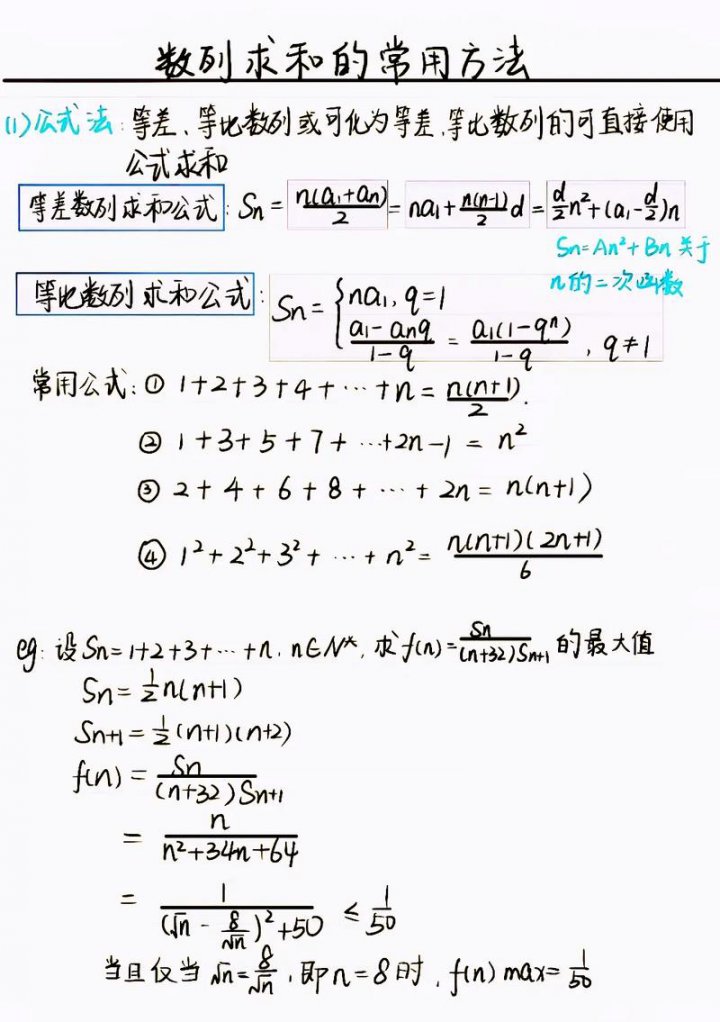 数列求和的常用方法
(1)公式法:等差、等比数列或可化为等差、等比数列的可直接使用
公式求和
等差数列求和公式: Sn = n(a₁+an)/2 = na₁ + n(n-1)/2 d = d/2 n² + (a₁ - d/2)n
Sn=An²+Bn 关于
n的二次函数
等比数列求和公式: Sn = { na₁, q=1
(a₁-anq)/(1-q) = a₁(1-qⁿ)/(1-q) , q≠1
常用公式:① 1+2+3+4+…+n = n(n+1)/2.
② 1+3+5+7+…+2n-1 = n²
③ 2+4+6+8+…+2n = n(n+1)
④ 1²+2²+3²+…+n² = n(n+1)(2n+1)/6
eg: 设Sn=1+2+3+…+n, n∈N*, 求f(n)=Sn/(n+32)Sn+1 的最大值
Sn=1/2 n(n+1)
Sn+1=1/2 (n+1)(n+2)
f(n) = Sn/(n+32)Sn+1
= n/(n²+34n+64)
= 1/((√n - 8/√n)²+50) ≤ 1/50
当且仅当 √n=8/√n, 即n=8时, f(n) max=1/50